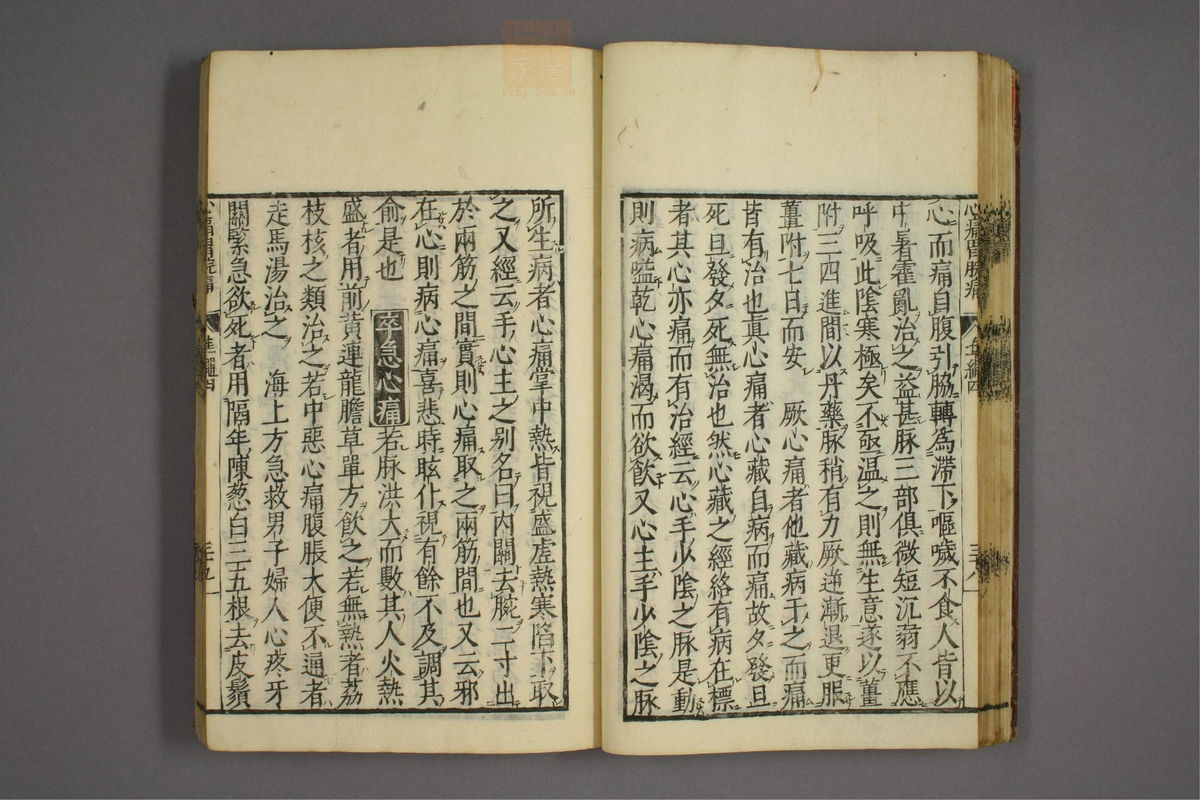 心而痛自腹引脇轉爲滯下嘔噦不食人皆以
中暑霍亂治之益甚脉三部俱微短沉弱不應
呼吸此陰寒極矣不亟温之則無生意遂以薑
附三四進間以丹藥脉稍有力厥逆漸退更服
薑附七日而安 厥心痛者他藏病干之而痛
皆有治也真心痛者心藏自病而痛故夕發旦
死旦發夕死無治也然心藏之經絡有病在標
者其心亦痛而有治經云心手少陰之脉是動
則病嗌乾心痛渴而欲飲又心主手少陰之脉
所生病者心痛掌中熱皆視盛虚熱寒陷下取
之又經云手心主之别名曰内關去腕二寸出
於兩筋之間實則心痛取之兩筋間也又云邪
在心則病心痛喜悲時眩仆視有餘不及調其
俞是也 卒急心痛 若脉洪大而數其人火熱
盛者用前黄連龍膽草單方飲之若無熱者荔
枝核之類治之若中惡心痛腹脹大便不通者
走馬湯治之 海上方急救男子婦人心疼牙
關緊急欲死者用隔年陳葱白三五根去皮鬚